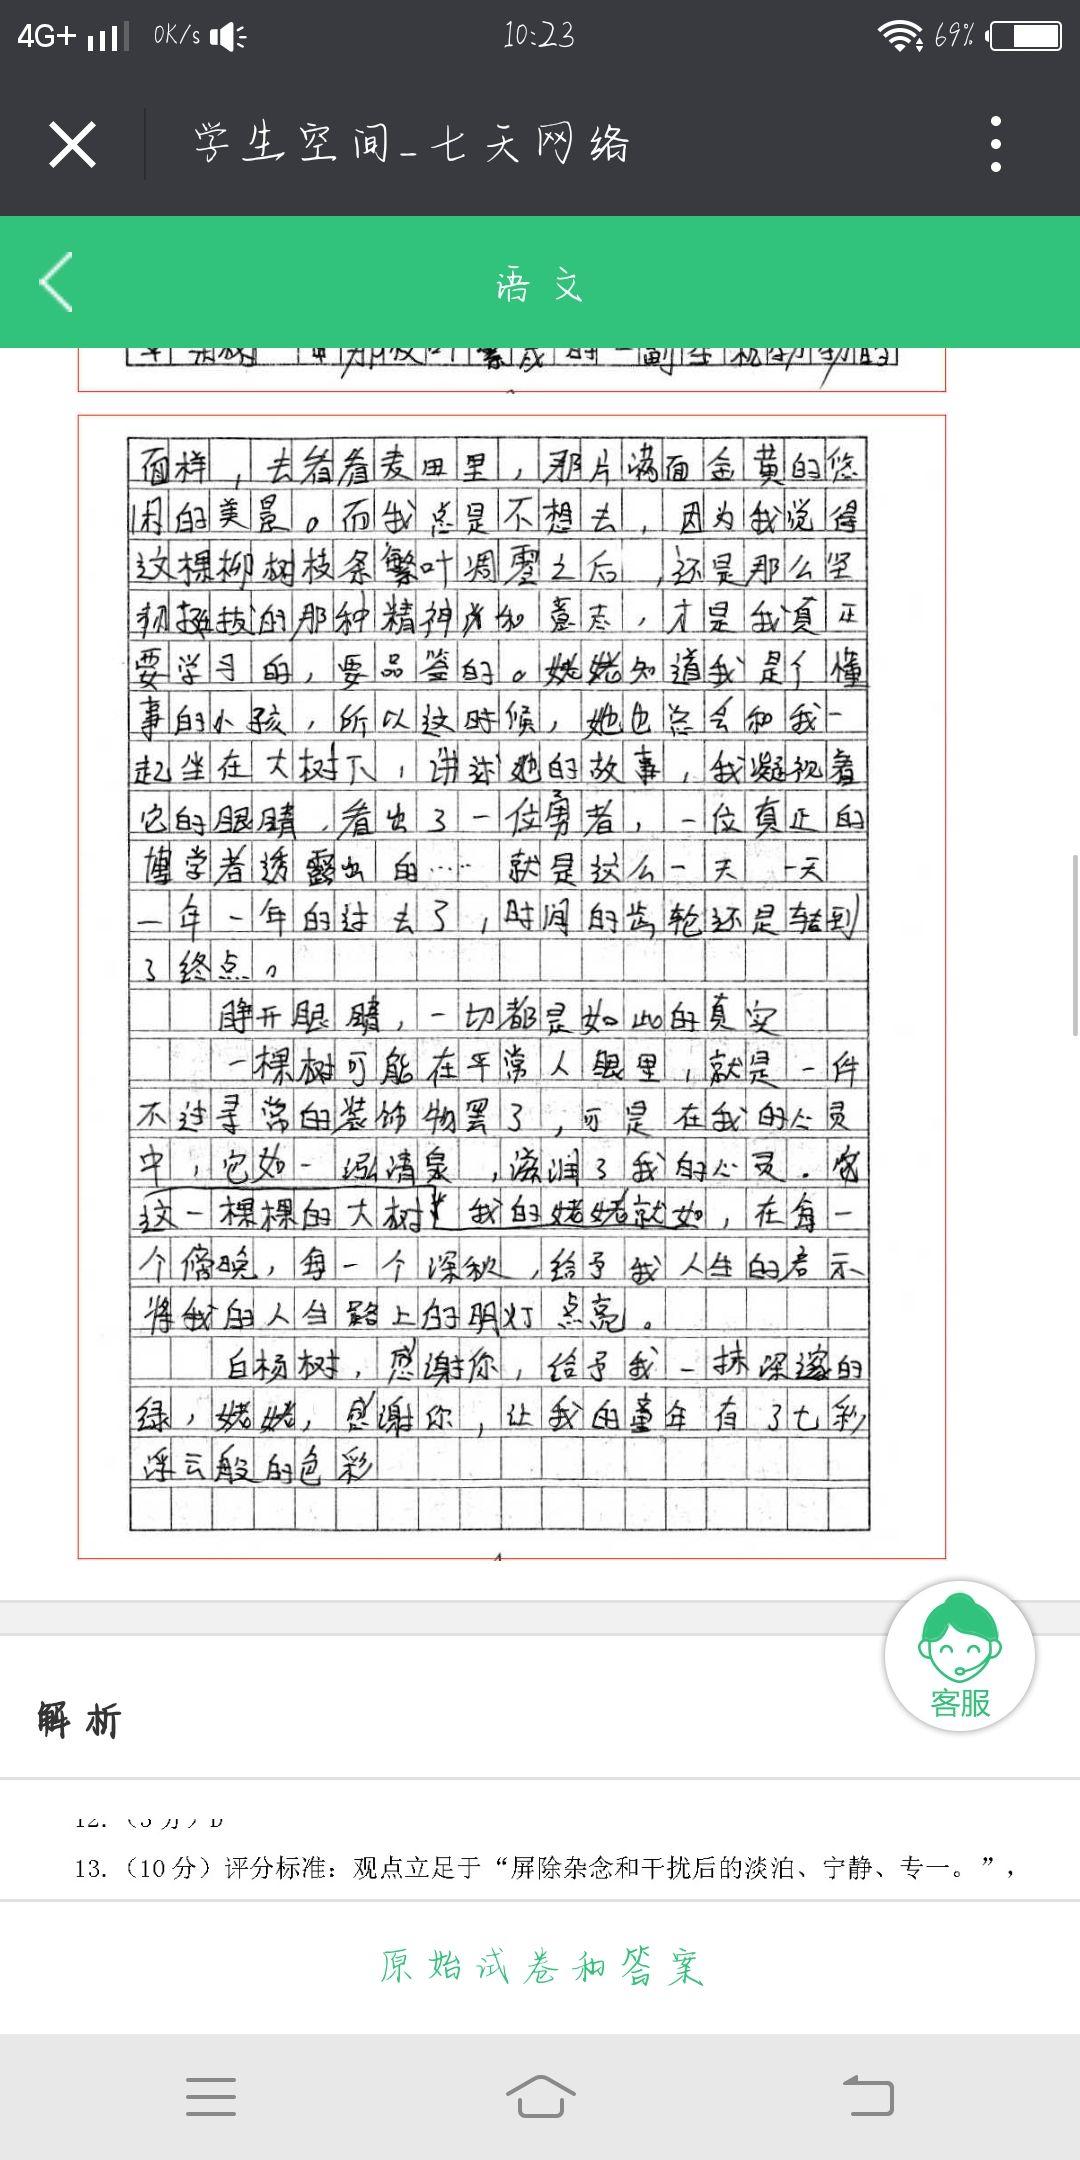 4G+ 0K/s 10:23 69%
学生空间_七天网络
语文
面样，去看看麦田里，那片满面金黄的悠
闲的美景。而我总是不想去，因为我觉得
这棵柳树枝条繁叶凋零之后，还是那么坚
韧挺拔的那种精神和意志，才是我真正
要学习的，要品签的。姥姥知道我是个懂
事的小孩，所以这时候，她也总会和我一
起坐在大树下，讲述她的故事，我凝视着
它的眼睛，看出了一位勇者，一位真正的
博学者透露出的…… 就是这么一天一天
一年一年的过去了，时间的齿轮还是转到
了终点。
睁开眼睛，一切都是如此的真实
一棵树可能在平常人眼里，就是一件
不过寻常的装饰物罢了，可是在我的心灵
中，它如一泓清泉，滋润了我的心灵。
这一棵棵的大树 我的姥姥就如，在每一
个傍晚，每一个深秋，给予我人生的启示
将我的人生路上的明灯点亮。
白杨树，感谢你，给予我一抹深邃的
绿，姥姥，感谢你，让我的童年有了七彩
浮云般的色彩
客服
解析
13.（10分）评分标准：观点立足于“屏除杂念和干扰后的淡泊、宁静、专一。”，
原始试卷和答案